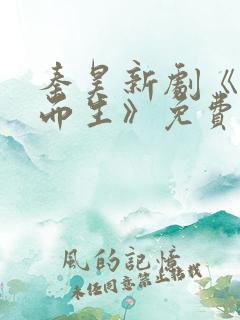 秦昊新劇《
而生》免費
風的記憶
未經同意禁止轉載